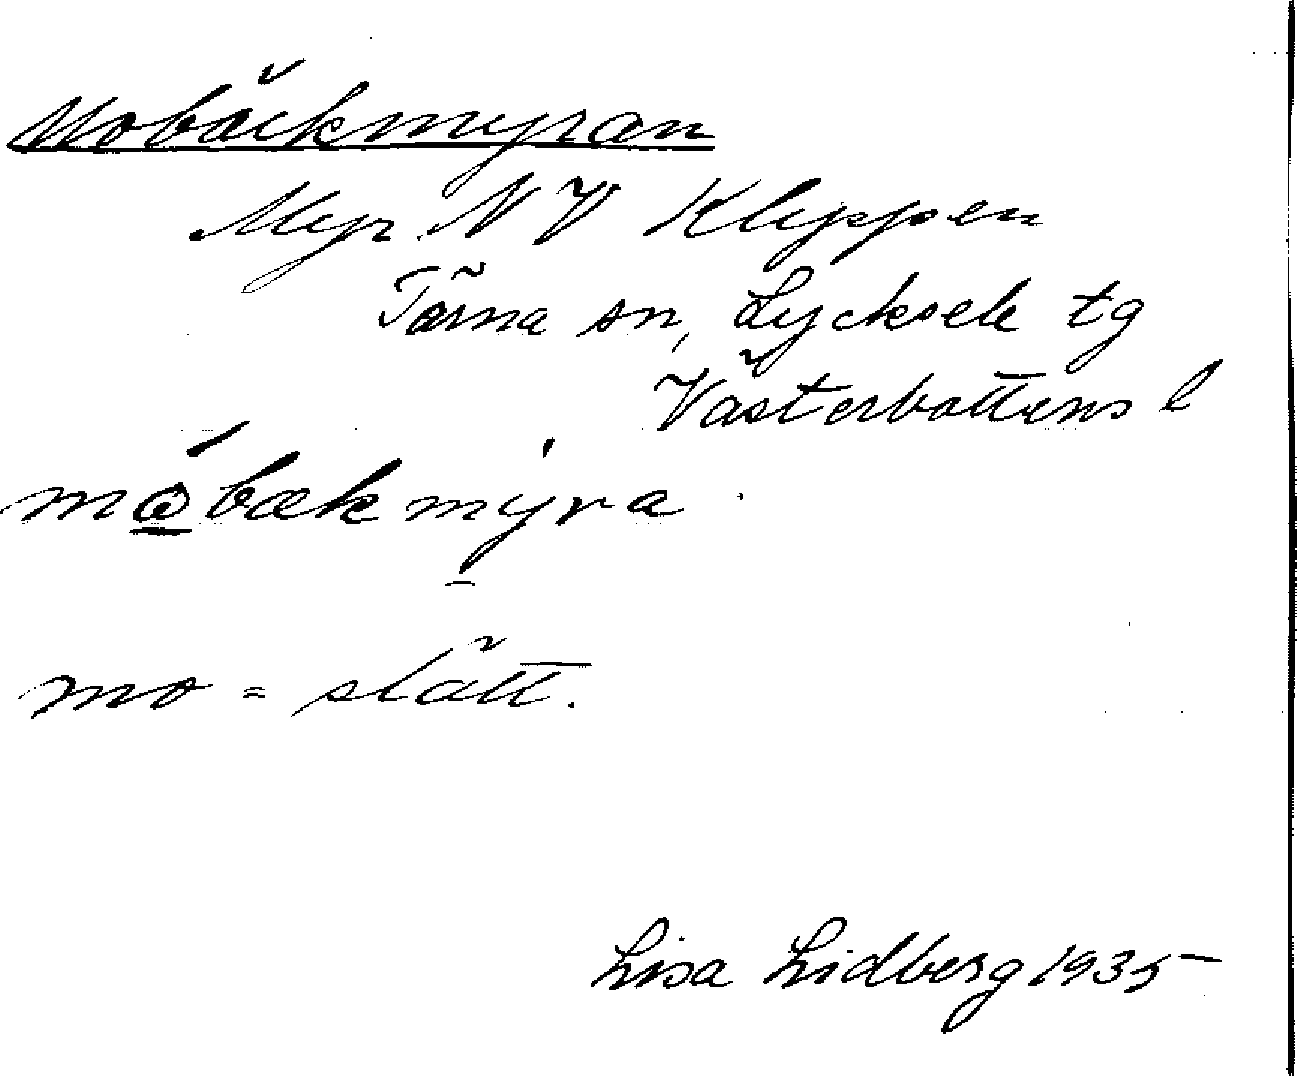 Mobäckmyran
Myr N V Klyppen
Tärna sn, Lycksele tg
Västerbottens l
mòbækmýra
mo = slätt.
Lisa Lidberg 1935